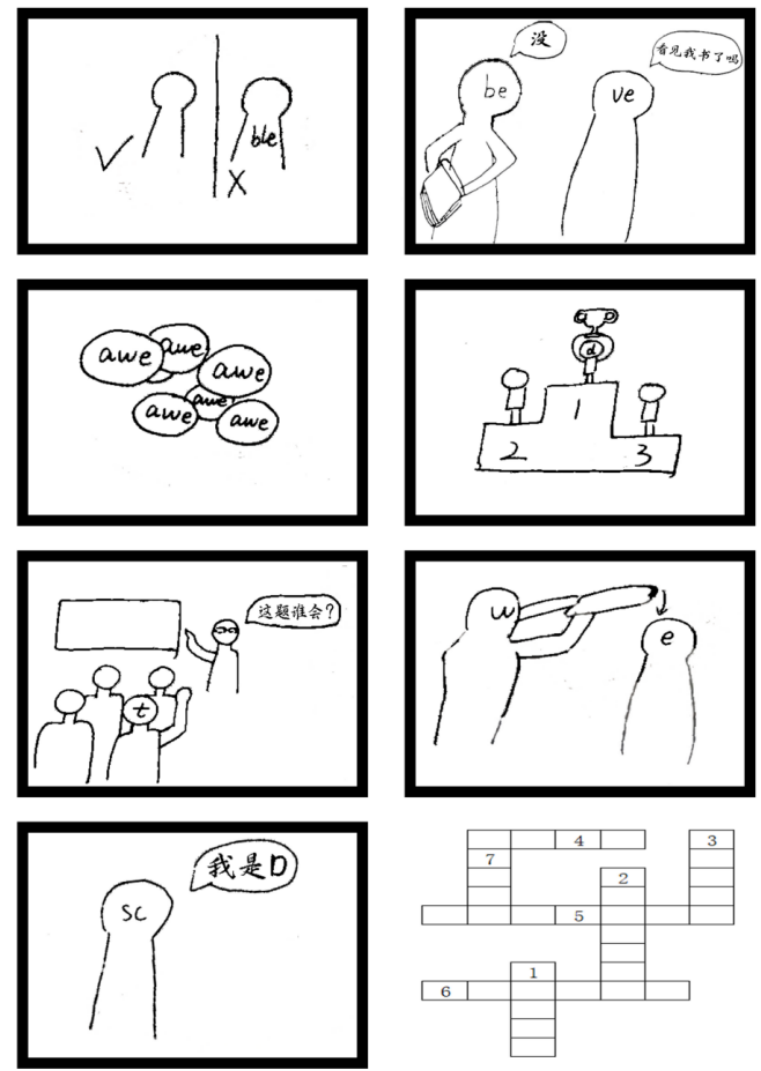 ble
没
be
看见我书了吗
ve
awe
awe
awe
awe
awe
awe
d
1
2
3
这题谁会?
t
w
e
我是D
sc
4
3
7
2
5
1
6